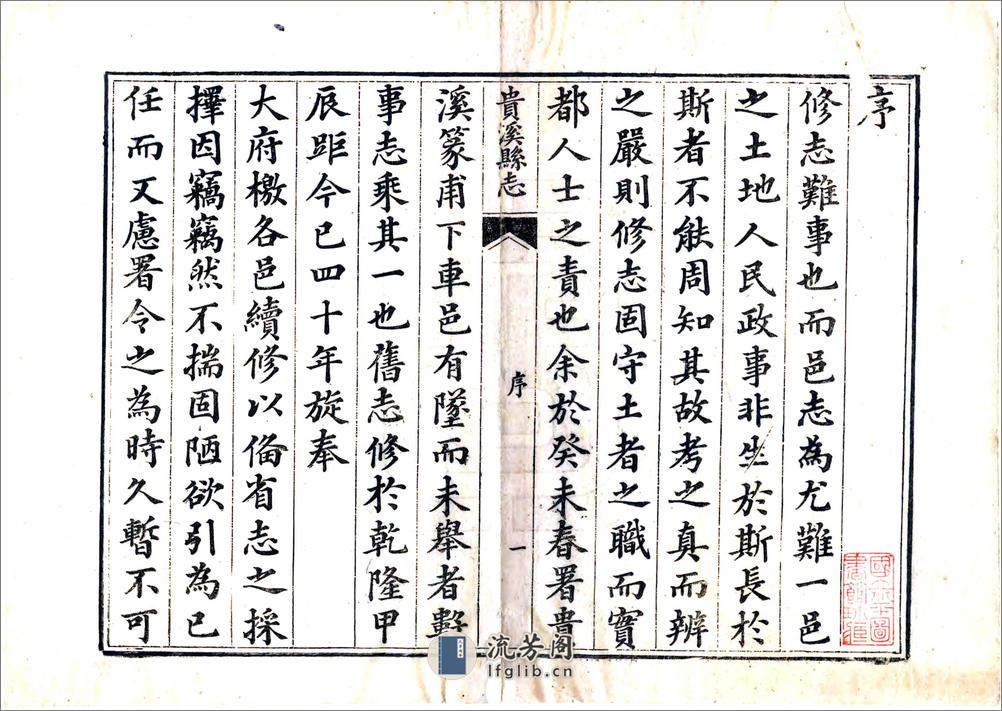 序
修志難事也而邑志為尤難一邑
之土地人民政事非生於斯長於
斯者不能周知其故考之真而辨
之嚴則修志固守土者之職而實
都人士之責也余於癸未春署貴
貴溪縣志
序
一
溪篆甫下車邑有墜而未舉者數
事志乘其一也舊志修於乾隆甲
辰距今已四十年旋奉
大府檄各邑續修以備省志之採
擇因竊竊然不揣固陋欲引為已
任而又慮署令之為時久暫不可
流芳阁
lfglib.cn